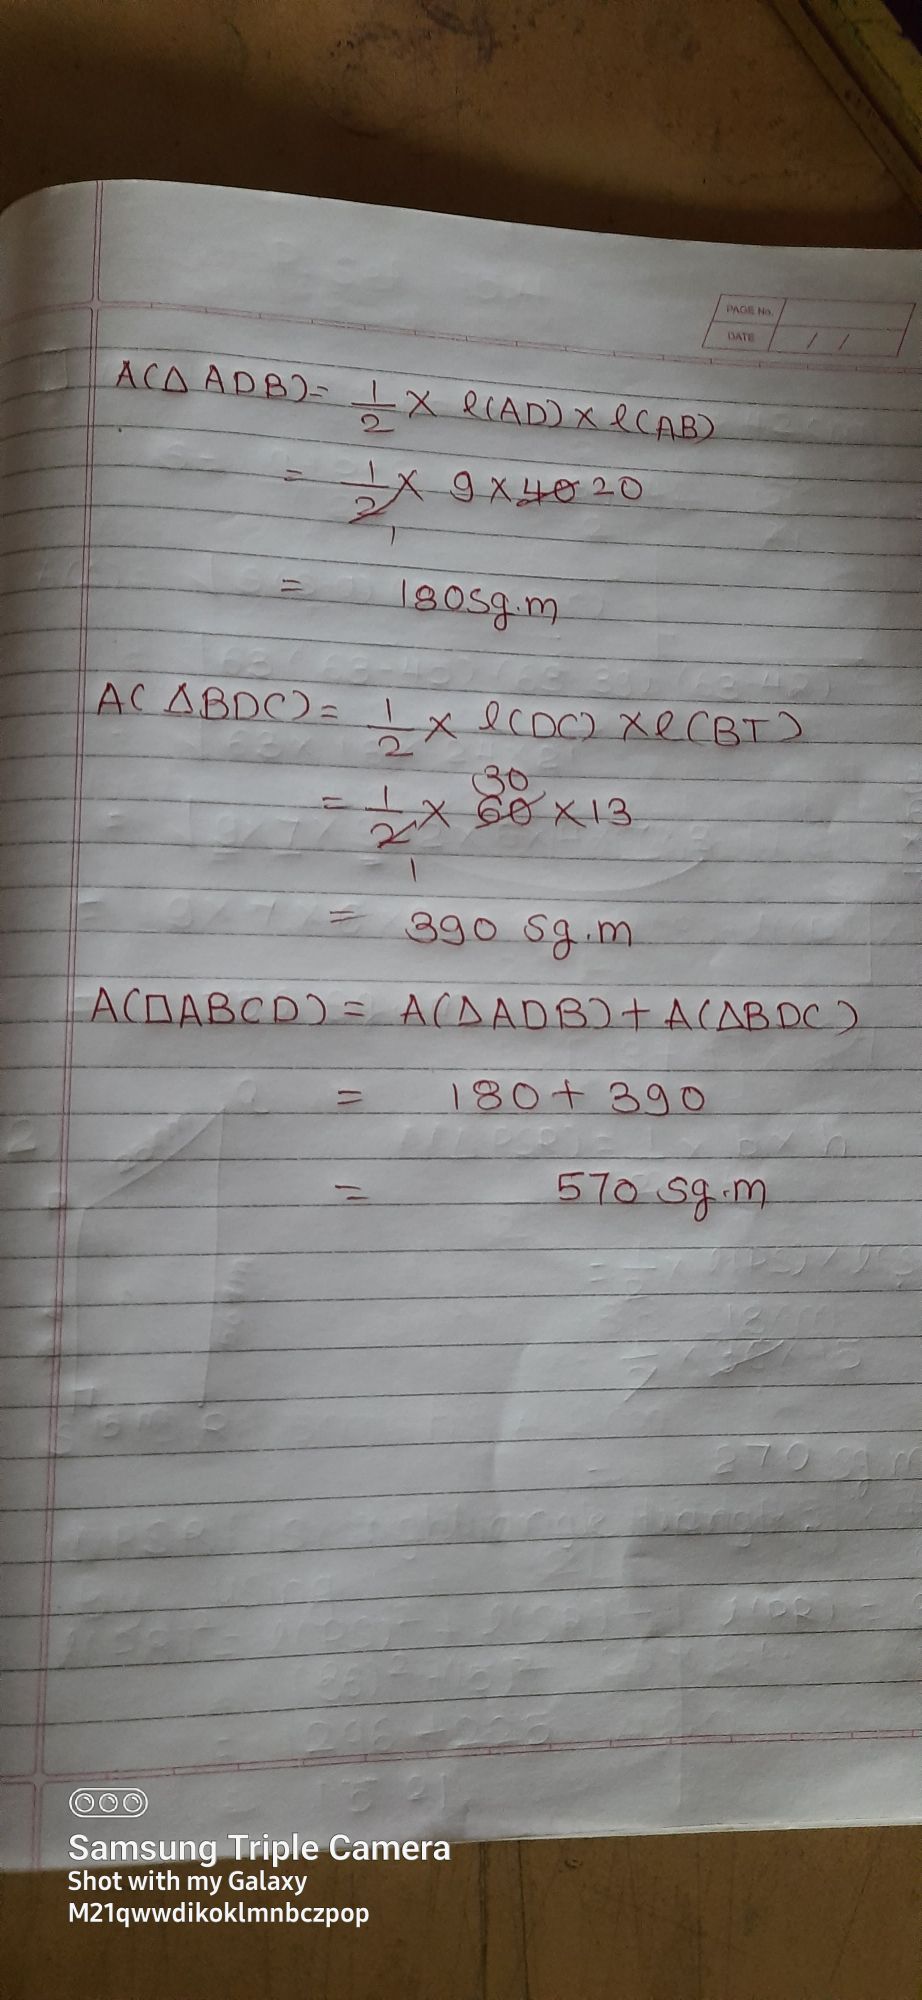 PAGE No.
DATE / /
A(△ ADB)= 1/2 × l(AD) × l(AB)
= 1/2 × 9 × 40 20
1
= 180 sq.m
A( △BDC) = 1/2 × l(DC) × l(BT)
30
= 1/2 × 60 × 13
1
= 390 sq.m
A(□ABCD) = A(△ADB) + A(△BDC)
= 180 + 390
= 570 sq.m
Samsung Triple Camera
Shot with my Galaxy
M21qwwdikoklmnbczpop